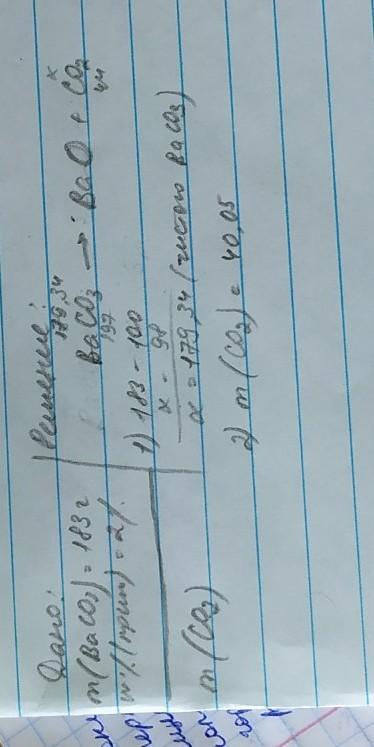 Дано:
m(BaCO₃) = 183 г
m%(прим) = 2%
m(CO₂)
Решение:
179,34 x
BaCO₃ → BaO + CO₂
197 44
1) 183 - 100
x - 98
x = 179,34 (чистого BaCO₃)
2) m(CO₂) = 40,05